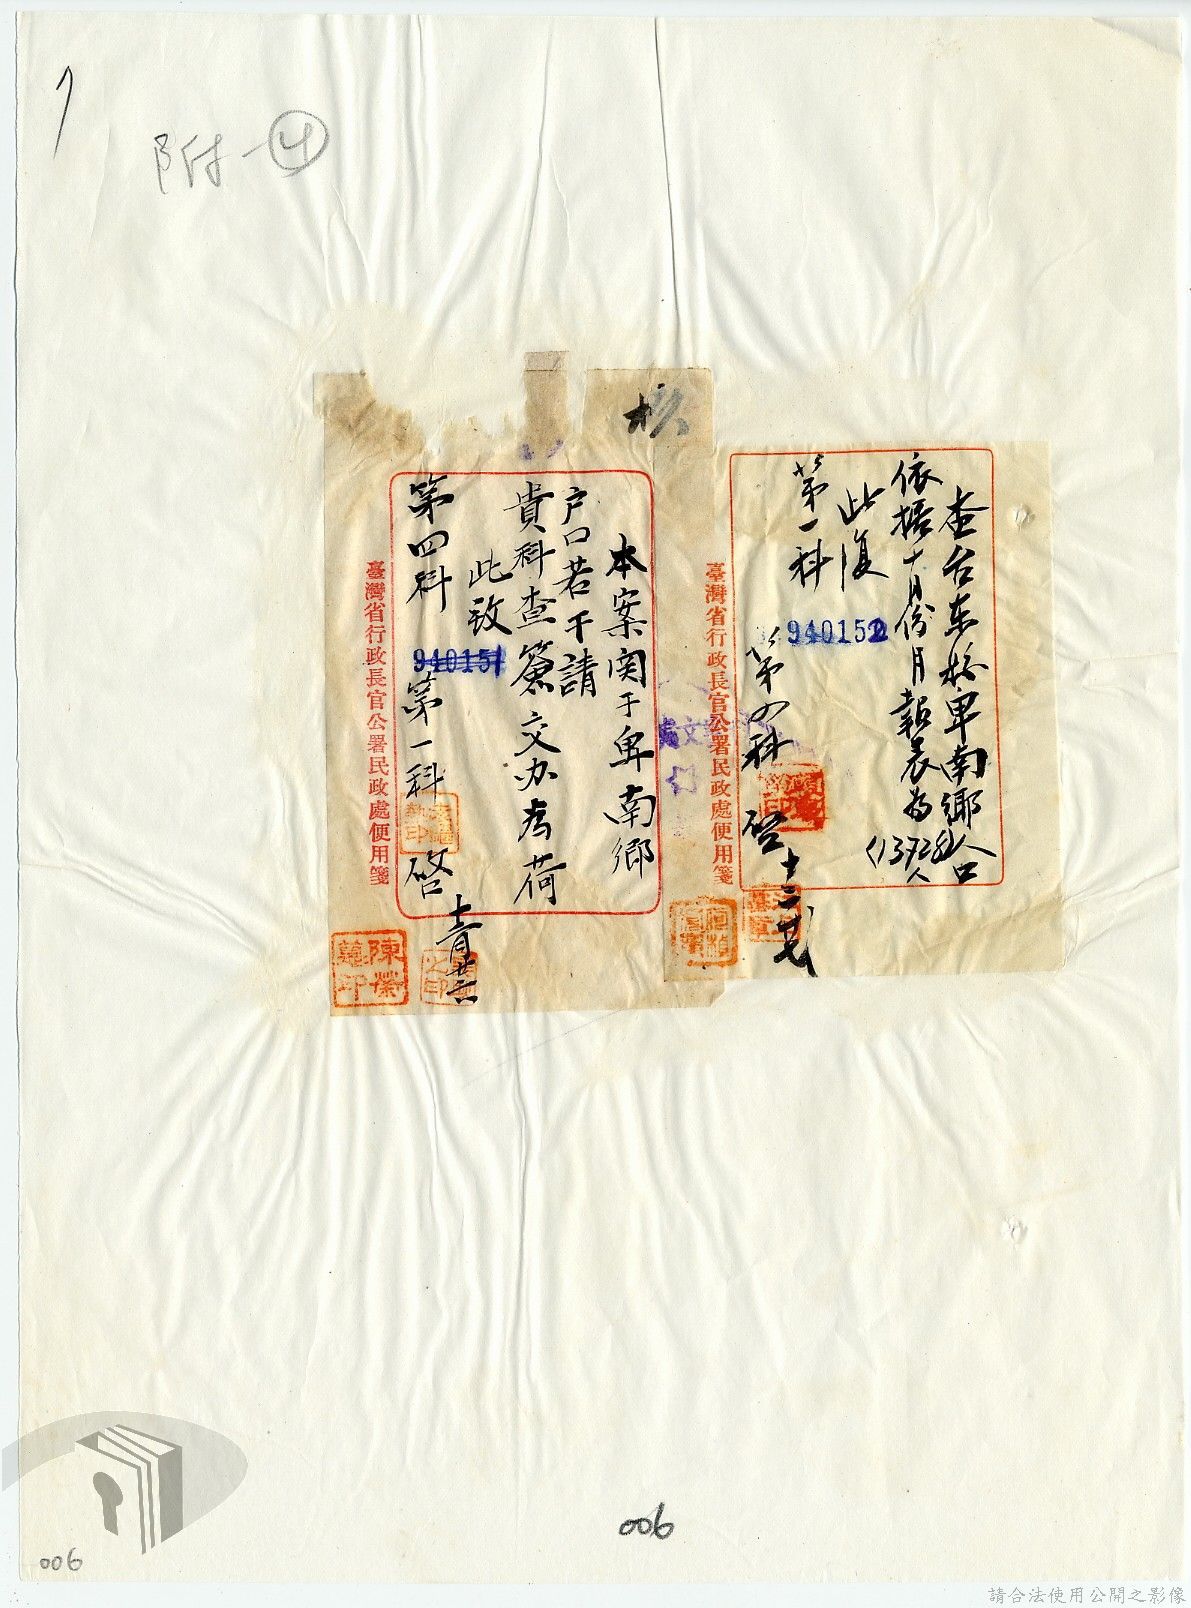 附一④
核
查台东縣卑南鄉人口
依據十月份月報表為(13928)人
此復
第一科
940152
第四科 啓 十二、廿七
臺灣省行政長官公署民政處便用箋
本案関于卑南鄉
戶口若干請
貴科查簽交办為荷
此致
第四科
940151
第一科 啓
臺灣省行政長官公署民政處便用箋
陳榮
印
006
006
請合法使用公開之影像